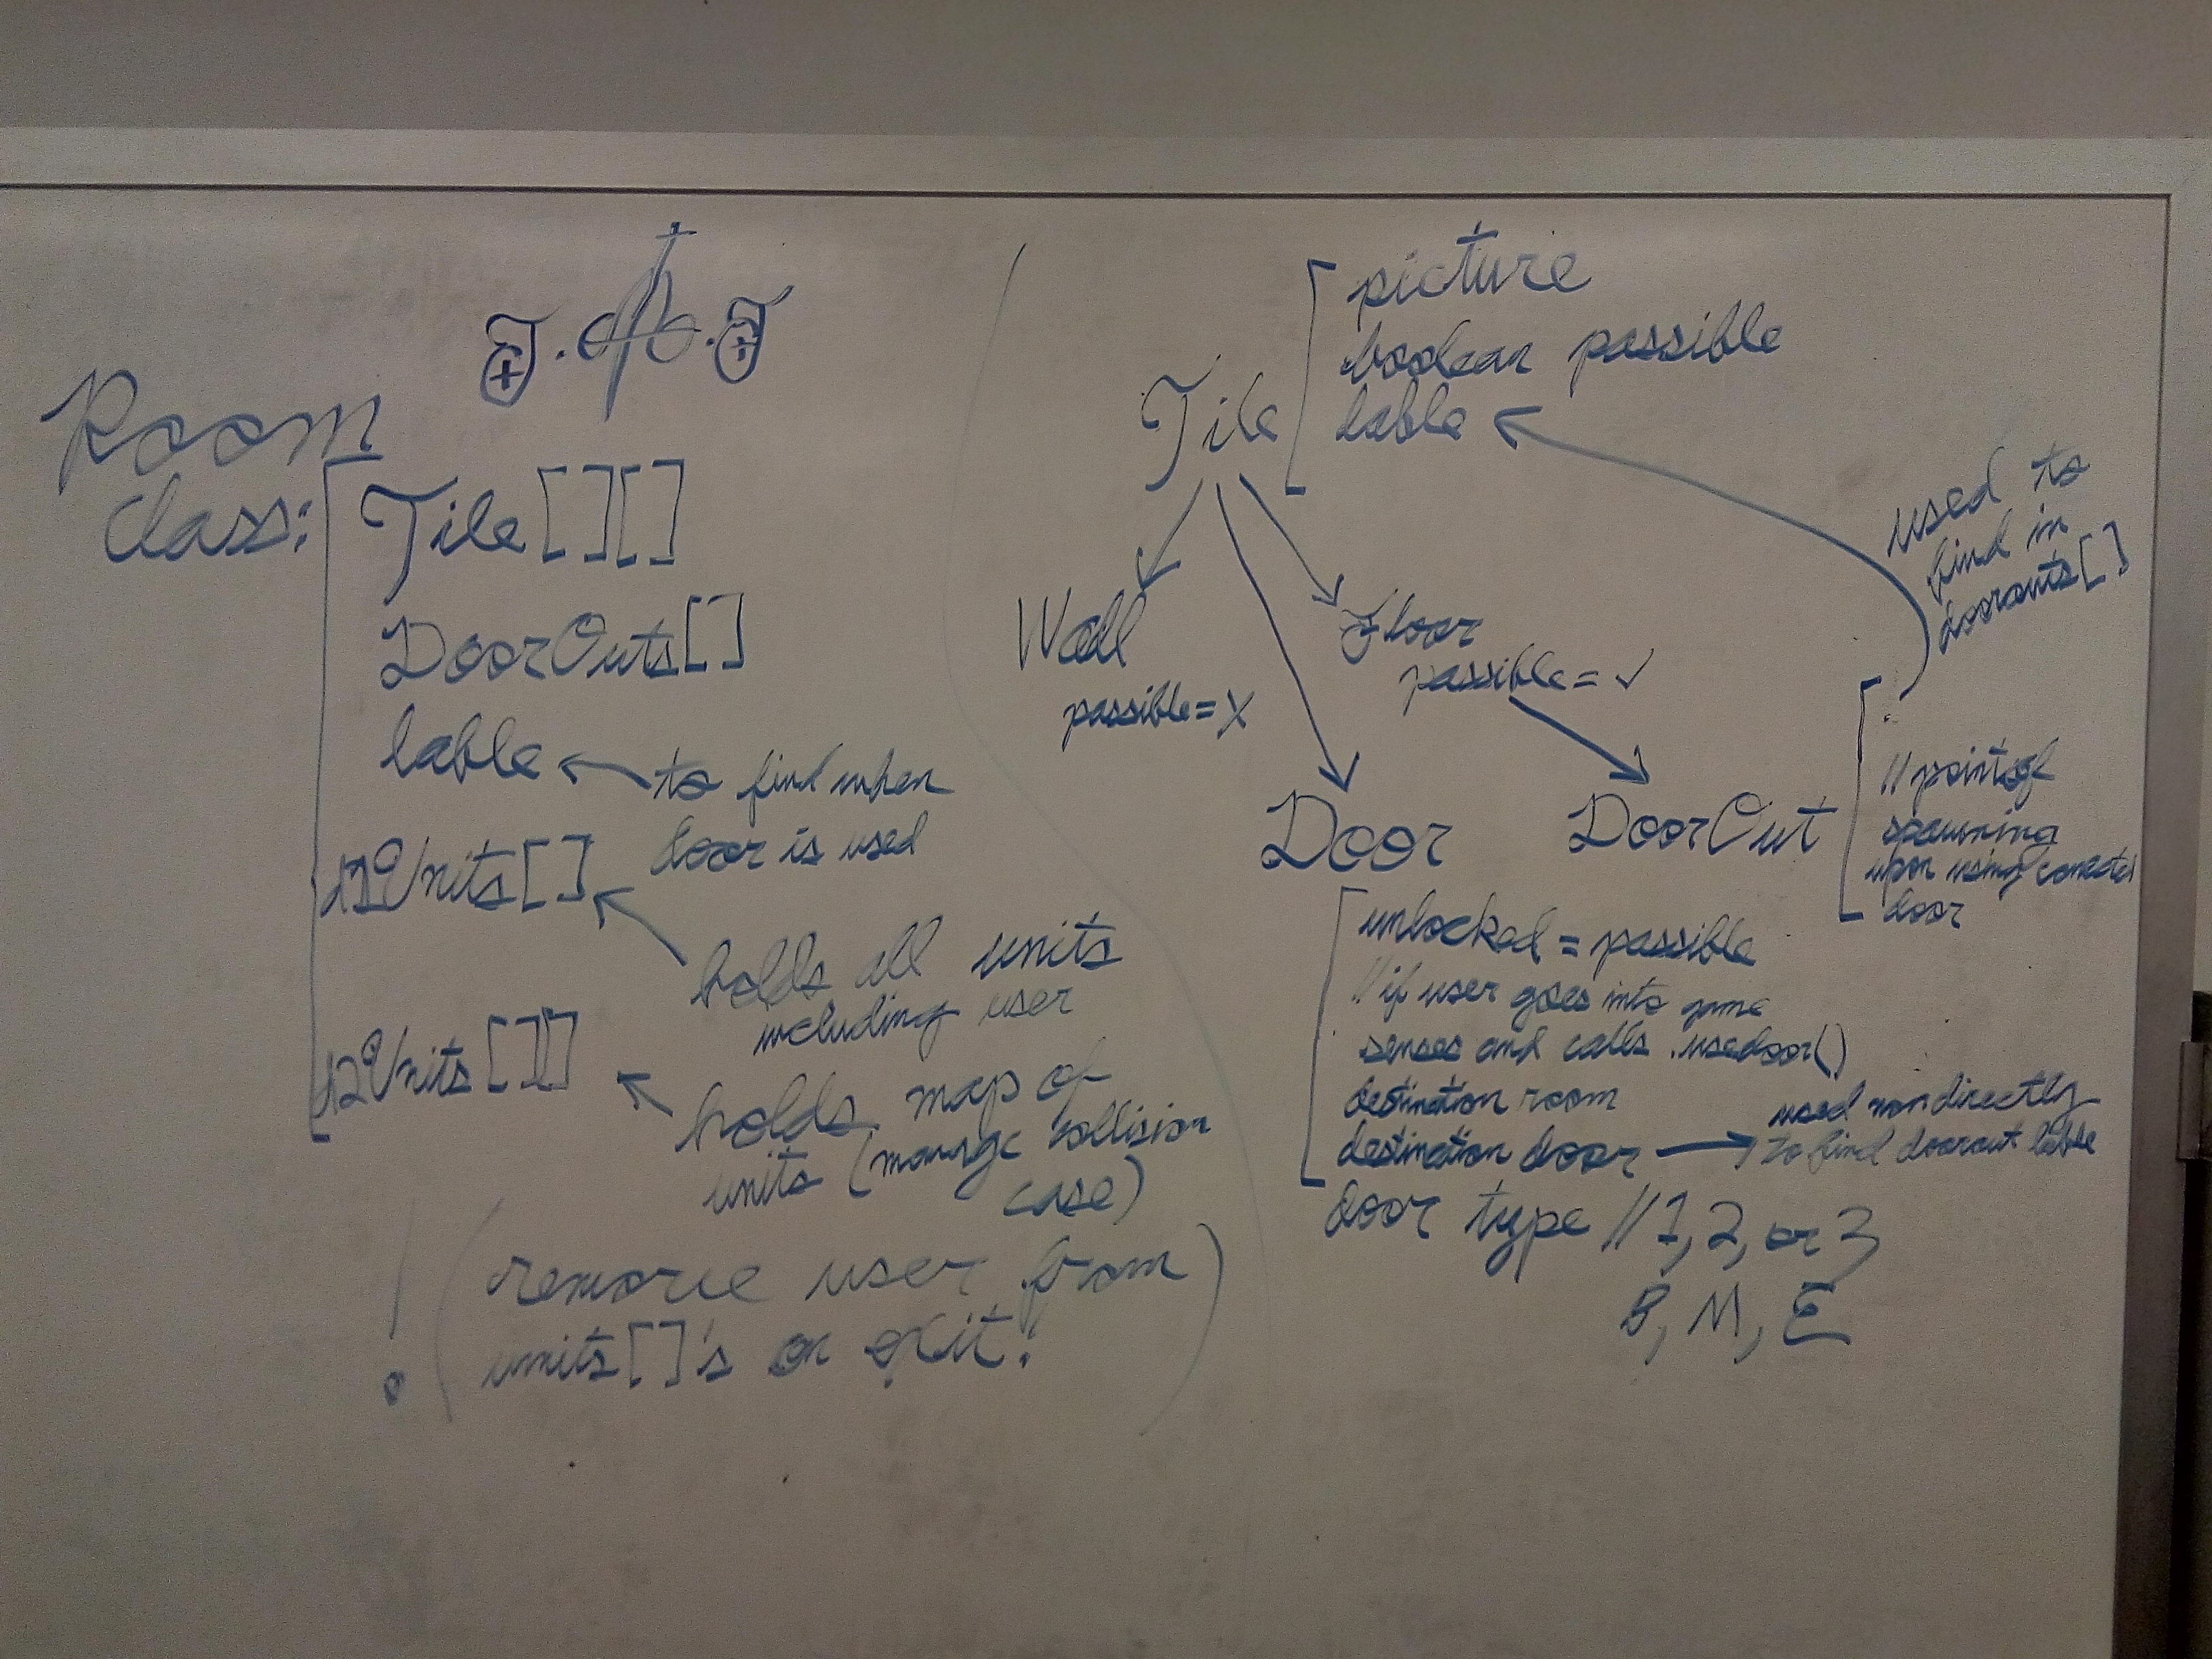 Room
Class:
Tile[][]
DoorOuts[]
lable
to find when
door is used
Units[]
holds all units
including user
Units[][]
holds map of
units (manage collision
case)
! (remove user from
units[]'s on exit!)
Tile
picture
boolean passible
lable
used to
find in
doorouts[]
Wall
passible = X
Floor
passible = ✓
Door
unlocked = passible
//if user goes into game
senses and calls .usedoor()
destination room
destination door
used nondirectly
to find doorout lable
door type // 1, 2, or 3
B, M, E
DoorOut
//point of
spawning
upon using
door